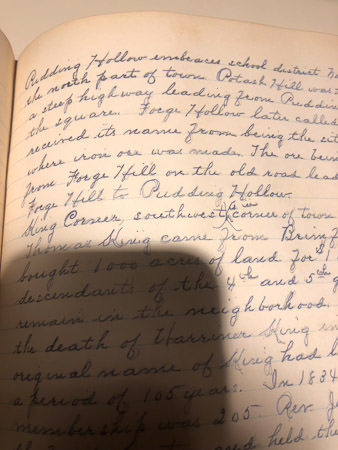 Pudding Hollow embraces school district
the north part of town. Potash Hill was
a steep highway leading from Puddin
the square. Forge Hollow later called
received its name from being the sit
where iron ore was made. The ore
from Forge Hill on the old road lead
Forge Hill to Pudding Hollow.
King Corner, southwest corner of town
Thomas King came from Brimf
bought 1000 acres of land for $1
descendants of the 4th and 5th g
remain in the neighborhood.
the death of Harriner King in
original name of King had b
a period of 105 years. In 1834
membership was 205. Rev. Je
held the